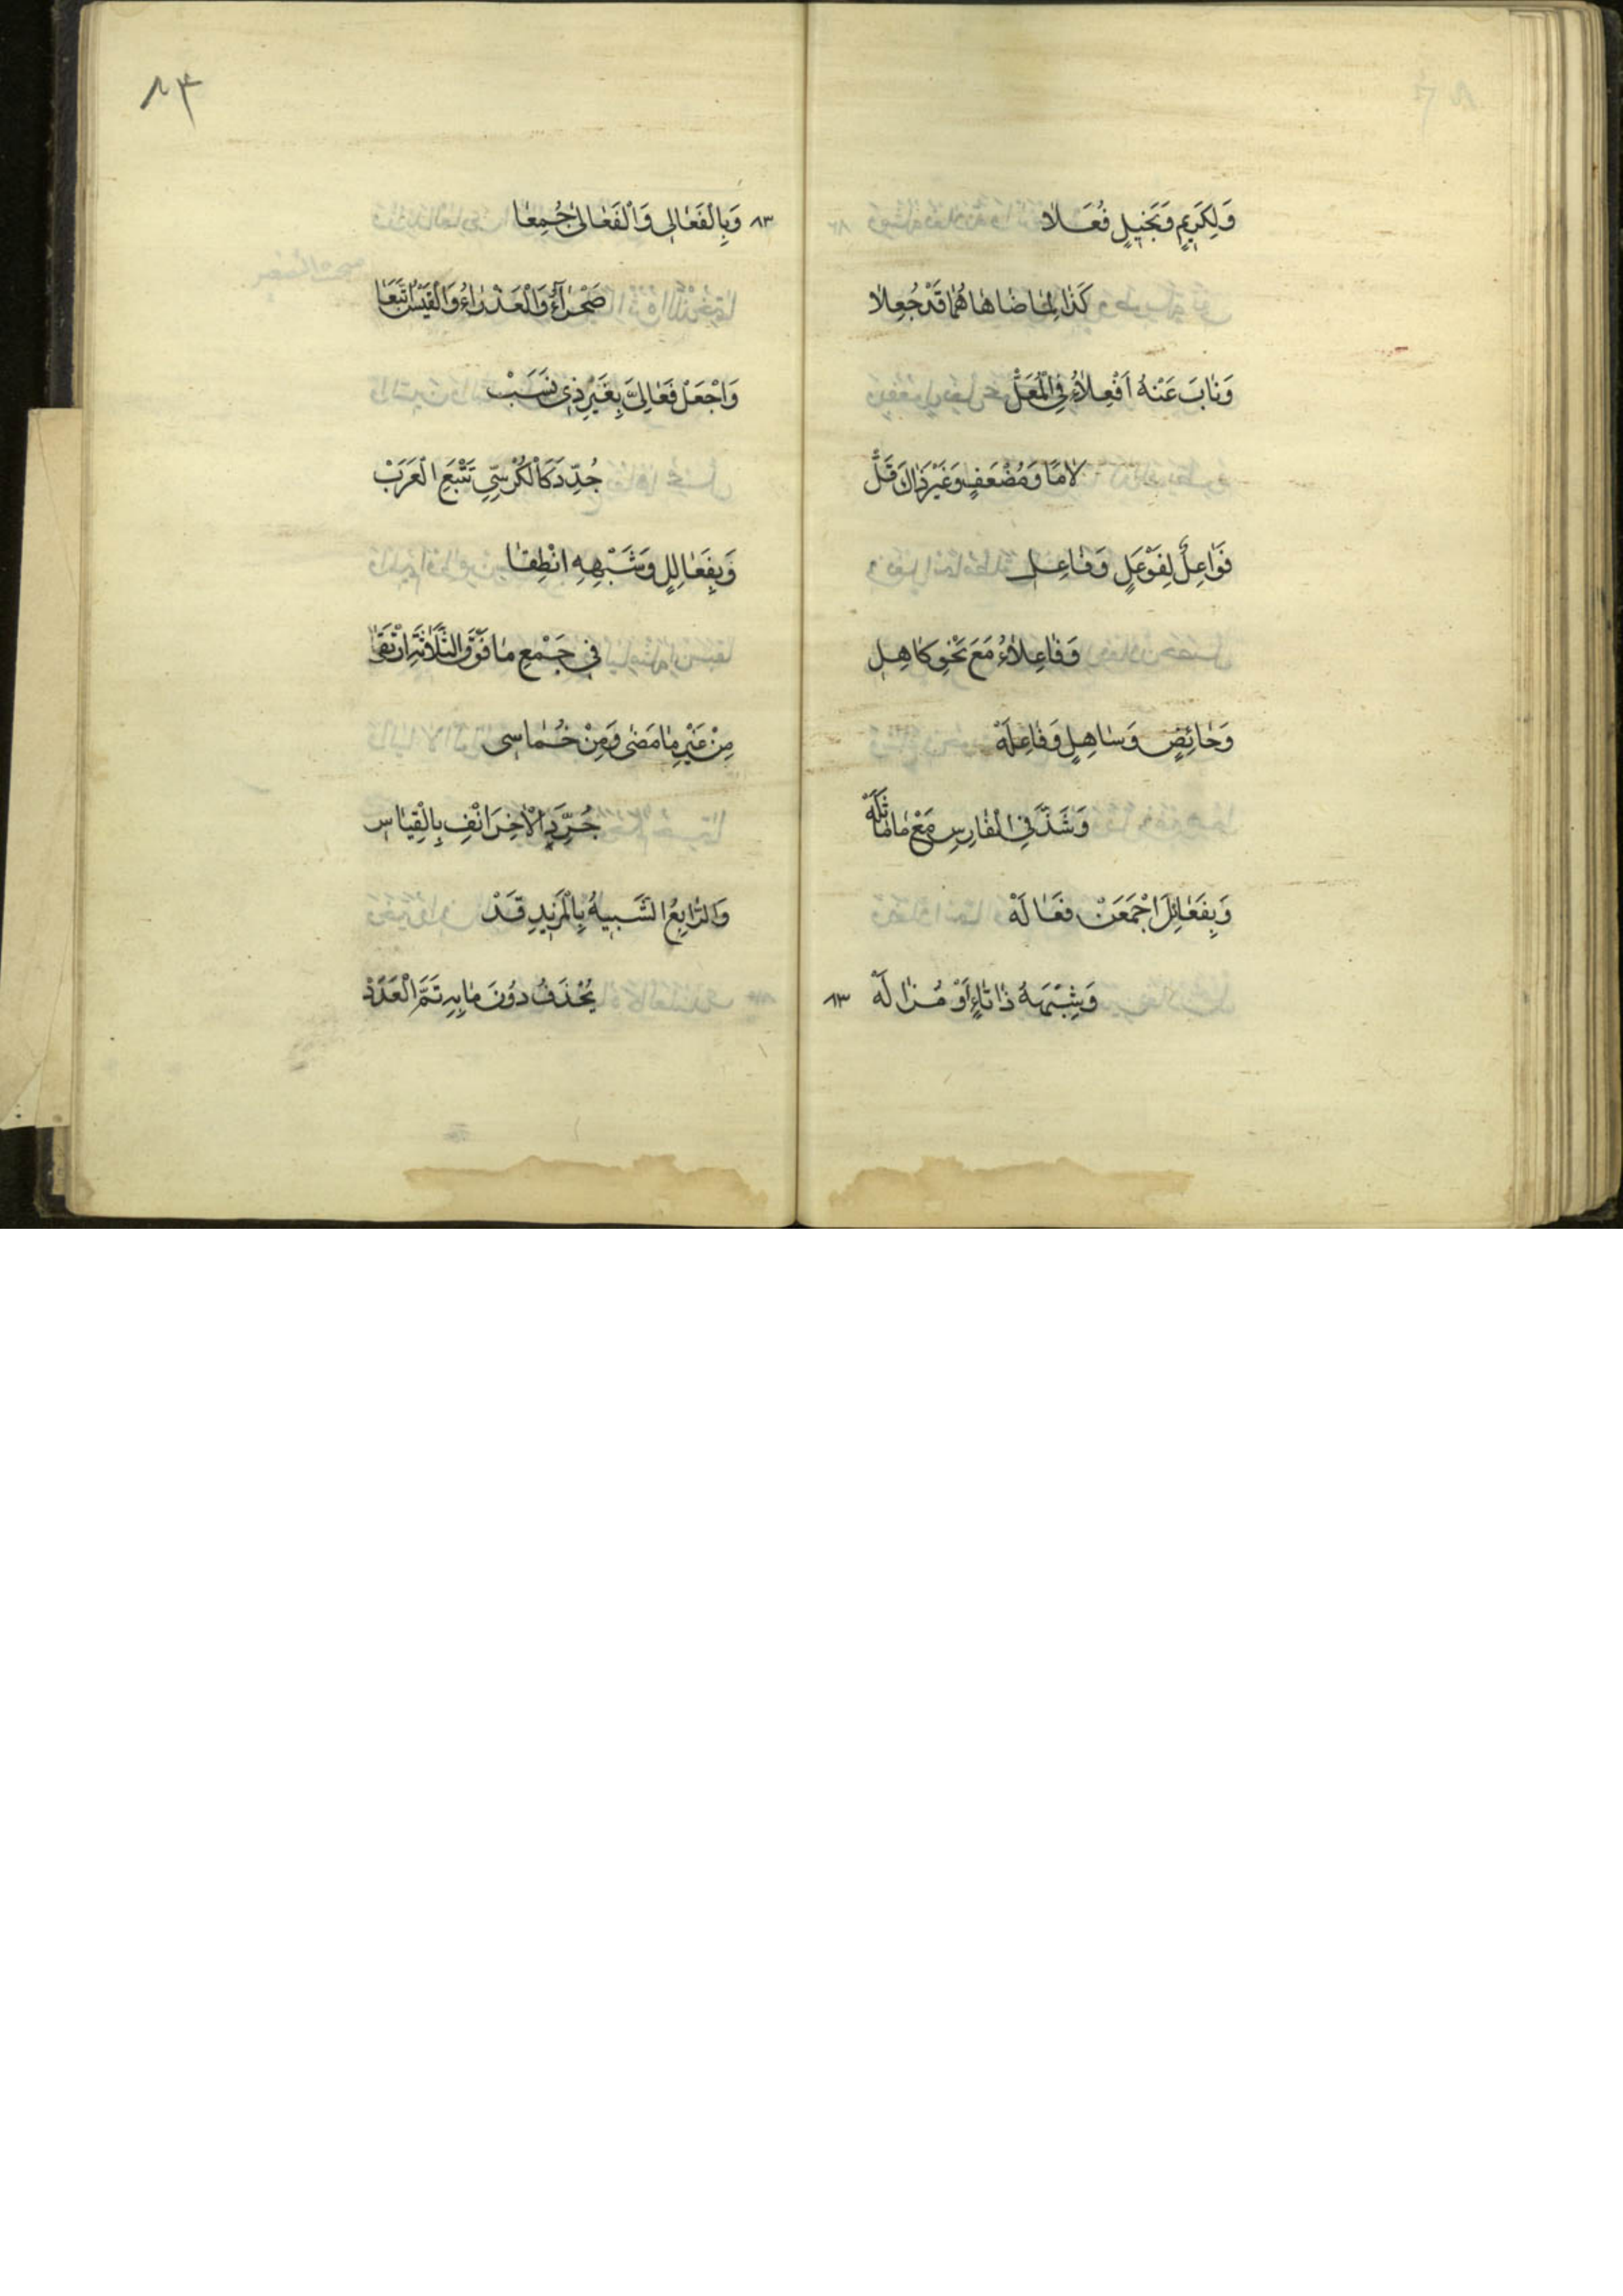 وَلِكَرِيمٍ وَبَخِيلٍ فُعَلَا
كَذَا لِمَا ضَاهَاهُمَا قَدْ جُعِلَا
وَنَابَ عَنْهُ اَفْعِلَاءُ فِي الْمُعَلّْ
لَامًا وَمُضْعَفٍ وَغَيْرُ ذَاكَ قَلّْ
فَوَاعِلٌ لِفَوْعَلٍ وَفَاعِلِ
وَفَاعِلَاءُ مَعَ نَحْوِ كَاهِلِ
وَحَائِضٍ وَسَاهِلٍ وَفَاعِلَهْ
وَشَذَّ فِي الْفَارِسِ مَعْ مَا مَاثَلَهْ
وَبِفَعَائِلَ اجْمَعَنْ فَعَالَهْ
وَشِبْهَهُ ذَا تَاءٍ اَوْ مُزَالَهْ
٨٣
٨٣
٨٣ وَبِالْفَعَالِي وَالْفَعَالَى جُمِعَا
صَحْرَاءُ وَالْعَذْرَاءُ وَالْقَيْسَ اتْبَعَا
وَاجْعَلْ فَعَالِيَّ بِغَيْرِ ذِي نَسَبْ
جُدِّدَ كَالْكُرْسِيِّ تَتْبَعِ الْعَرَبْ
وَبِفَعَالِلٍ وَشَبْهِهِ انْطِقَا
فِي جَمْعِ مَا فَوْقَ الثَّلَاثَةِ ارْتَقَى
مِنْ غَيْرِ مَا مَضَى وَمِنْ خُمَاسِى
جُرِّدَ الْاٰخِرَ انْفِ بِالْقِيَاسِ
وَالرَّابِعُ الشَّبِيهُ بِالْمَزِيدِ قَدْ
يُحْذَفُ دُونَ مَا بِهِ تَمَّ الْعَدَدْ